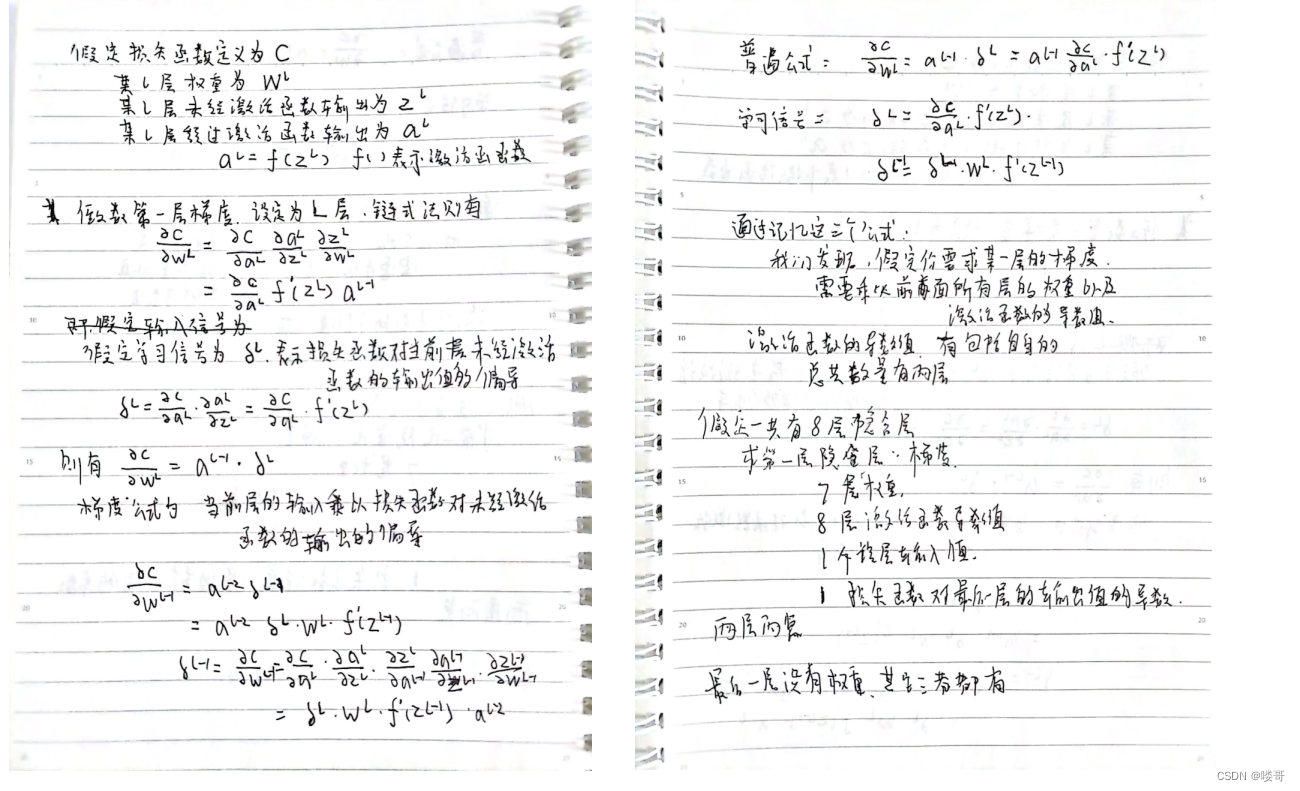 假定损失函数定义为 C
某 L 层 权重为 W^L
某 L 层 未经激活函数输出为 z^L
某 L 层经过激活函数输出为 a^L
a^L = f(z^L) f() 表示激活函数
倒数第一层梯度. 设定为 L 层, 链式法则有
∂C/∂w^L = ∂C/∂a^L ∂a^L/∂z^L ∂z^L/∂w^L
= ∂C/∂a^L f'(z^L) a^{L-1}
即 假定输入信号为
假定学习信号为 δ^L. 表示损失函数对当前层未经激活
函数的输出值的偏导
δ^L = ∂C/∂a^L · ∂a^L/∂z^L = ∂C/∂a^L · f'(z^L)
则有 ∂C/∂w^L = a^{L-1} · δ^L
梯度公式为 当前层的输入乘以损失函数对未经激活
函数的输出的偏导
∂C/∂w^{L-1} = a^{L-2} δ^{L-1}
= a^{L-2} δ^L · W^L · f'(z^{L-1})
δ^{L-1} = ∂C/∂w^{L-1} = ∂C/∂a^L · ∂a^L/∂z^L · ∂z^L/∂a^{L-1} · ∂a^{L-1}/∂z^{L-1} · ∂z^{L-1}/∂w^{L-1}
= δ^L · W^L · f'(z^{L-1}) · a^{L-2}
普遍公式: ∂C/∂w^L = a^{L-1} · δ^L = a^{L-1} ∂C/∂a^L · f'(z^L)
学习信号 = δ^L = ∂C/∂a^L · f'(z^L).
δ^{L-1} = · W^L · f'(z^{L-1})
通过记忆这三个公式:
我们发现, 假定你要求某一层的梯度.
需要乘以前面所有层的权重以及
激活函数的导数值.
激活函数的导数值 有包括自身的
总共数量有两层
假定一共有 8 层隐含层
求第一层隐含层 梯度.
7 层权重.
8 层激活函数导数值
1 个该层输入值.
1 损失函数对最后一层的输出值的导数.
两层两
最后一层没有权重, 其它三者都有
CSDN @喽哥